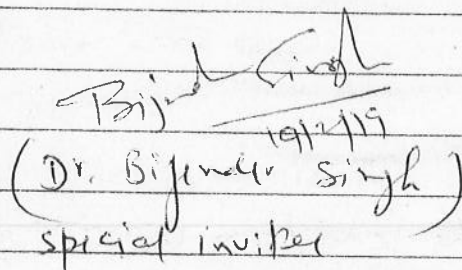 Bijender Singh
19/2/19
(Dr. Bijender Singh)
special invitee